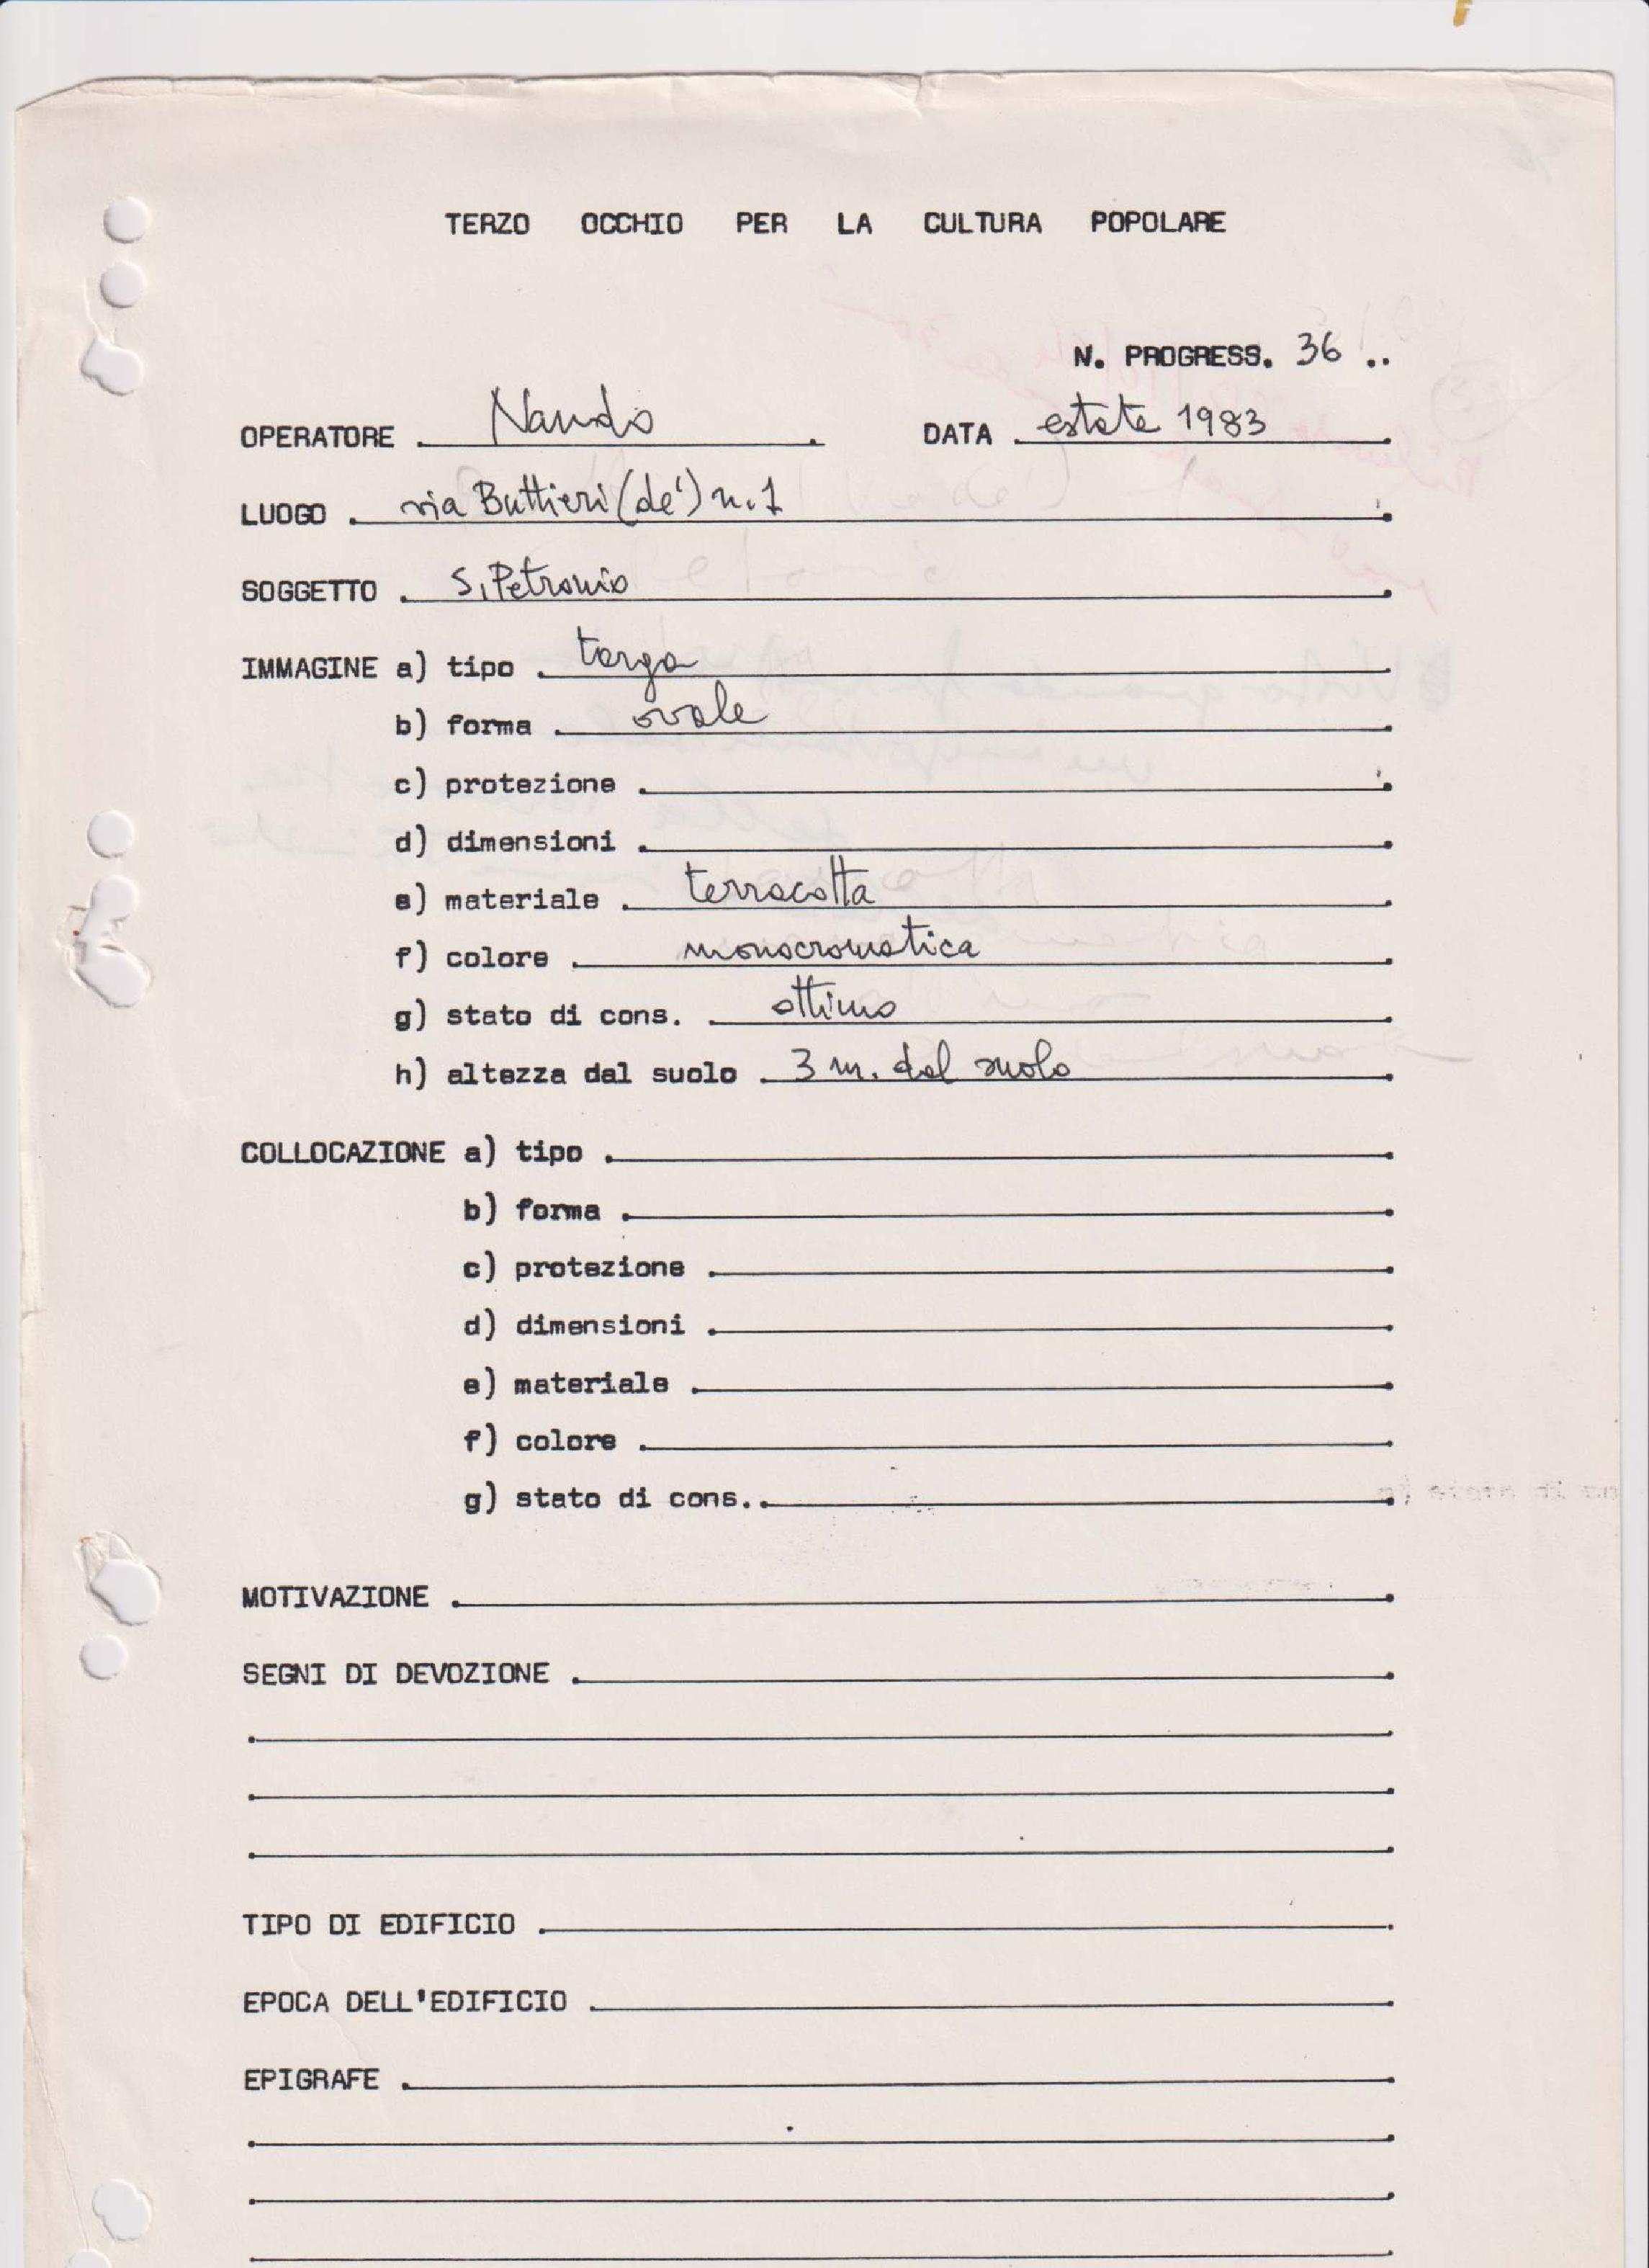 TERZO OCCHIO PER LA CULTURA POPOLARE
N. PROGRESS. 36 ..
OPERATORE . Nando . DATA . estate 1983
LUOGO . via Buttieri (de') n. 1
SOGGETTO . S. Petronio
IMMAGINE a) tipo . targa
b) forma . ovale
c) protezione .
d) dimensioni .
e) materiale . terracotta
f) colore . monocromatica
g) stato di cons. . ottimo
h) altezza dal suolo . 3 m. dal suolo
COLLOCAZIONE a) tipo .
b) forma .
c) protezione .
d) dimensioni .
e) materiale .
f) colore .
g) stato di cons..
MOTIVAZIONE .
SEGNI DI DEVOZIONE .
TIPO DI EDIFICIO .
EPOCA DELL'EDIFICIO .
EPIGRAFE .